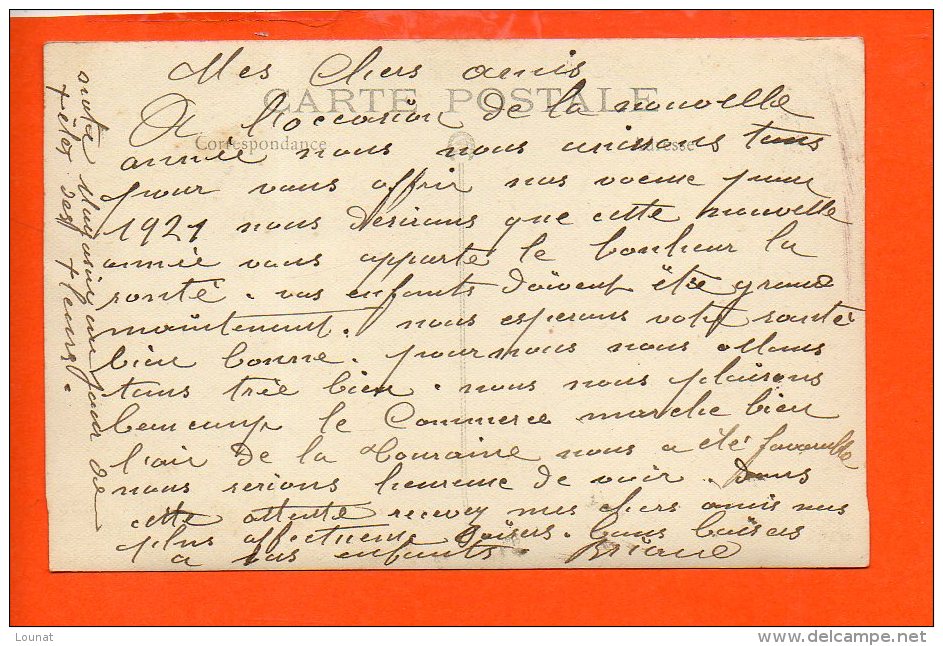 Mes Chers amis
CARTE POSTALE
A l'occasion de la nouvelle
Correspondance
année nous nous unissons tous
pour vous offrir nos voeux pour
1921 nous désirons que cette nouvelle
année vous apporte le bonheur la
santé. vos enfants doivent être grand
maintenant. nous esperons votre santé
bien bonne. pour nous nous allons
tous trè bien. nous nous plaisons
beaucoup le Commerce marche bien
l'air de la Touraine nous a été favorable
nous serions heureux de voir. Dans
cette attente recevez mes chers amis nos
plus affectueux. bons baisers
a vos enfants. Briane
notre Magasin un jour de
fêtes. fleurs.
Lounat
www.delcampe.net